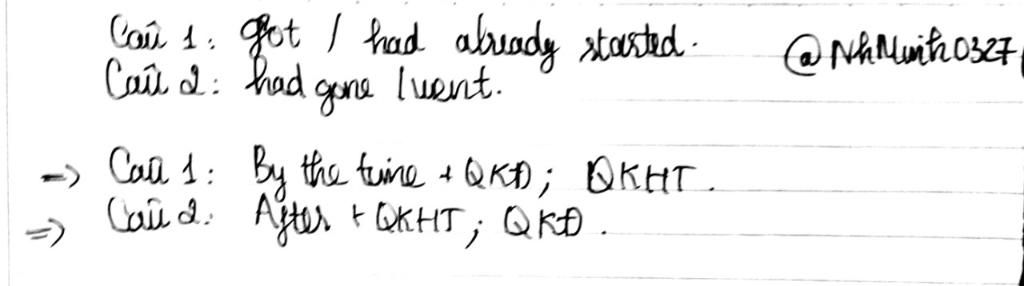 Câu 1: got / had already started.
@NhMinh0327
Câu 2: had gone / went.
=> Câu 1: By the time + QKĐ; QKHT.
=> Câu 2: After + QKHT; QKĐ.